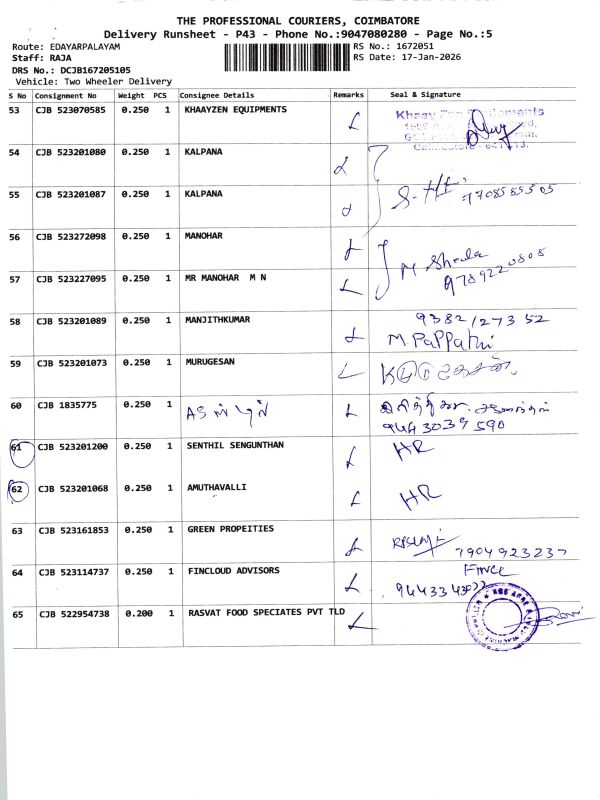 THE PROFESSIONAL COURIERS, COIMBATORE
Delivery Runsheet - P43 - Phone No.:9047080280 - Page No.:5
Route: EDAYARPALAYAM RS No.: 1672051
Staff: RAJA RS Date: 17-Jan-2026
DRS No.: DCJB167205105
Vehicle: Two Wheeler Delivery
S No Consignment No Weight PCS Consignee Details Remarks Seal & Signature
53 CJB 523070585 0.250 1 KHAAYZEN EQUIPMENTS
54 CJB 523201080 0.250 1 KALPANA
55 CJB 523201087 0.250 1 KALPANA 7708585505
56 CJB 523272098 0.250 1 MANOHAR M Sheela
57 CJB 523227095 0.250 1 MR MANOHAR M N 9789220808
58 CJB 523201089 0.250 1 MANJITHKUMAR 9382127352
M. Pappathi
59 CJB 523201073 0.250 1 MURUGESAN
60 CJB 1835775 0.250 1
9443039590
61 CJB 523201200 0.250 1 SENTHIL SENGUNTHAN HR
62 CJB 523201068 0.250 1 AMUTHAVALLI HR
63 CJB 523161853 0.250 1 GREEN PROPEITIES 7904923237
64 CJB 523114737 0.250 1 FINCLOUD ADVISORS
65 CJB 522954738 0.200 1 RASVAT FOOD SPECIATES PVT TLD